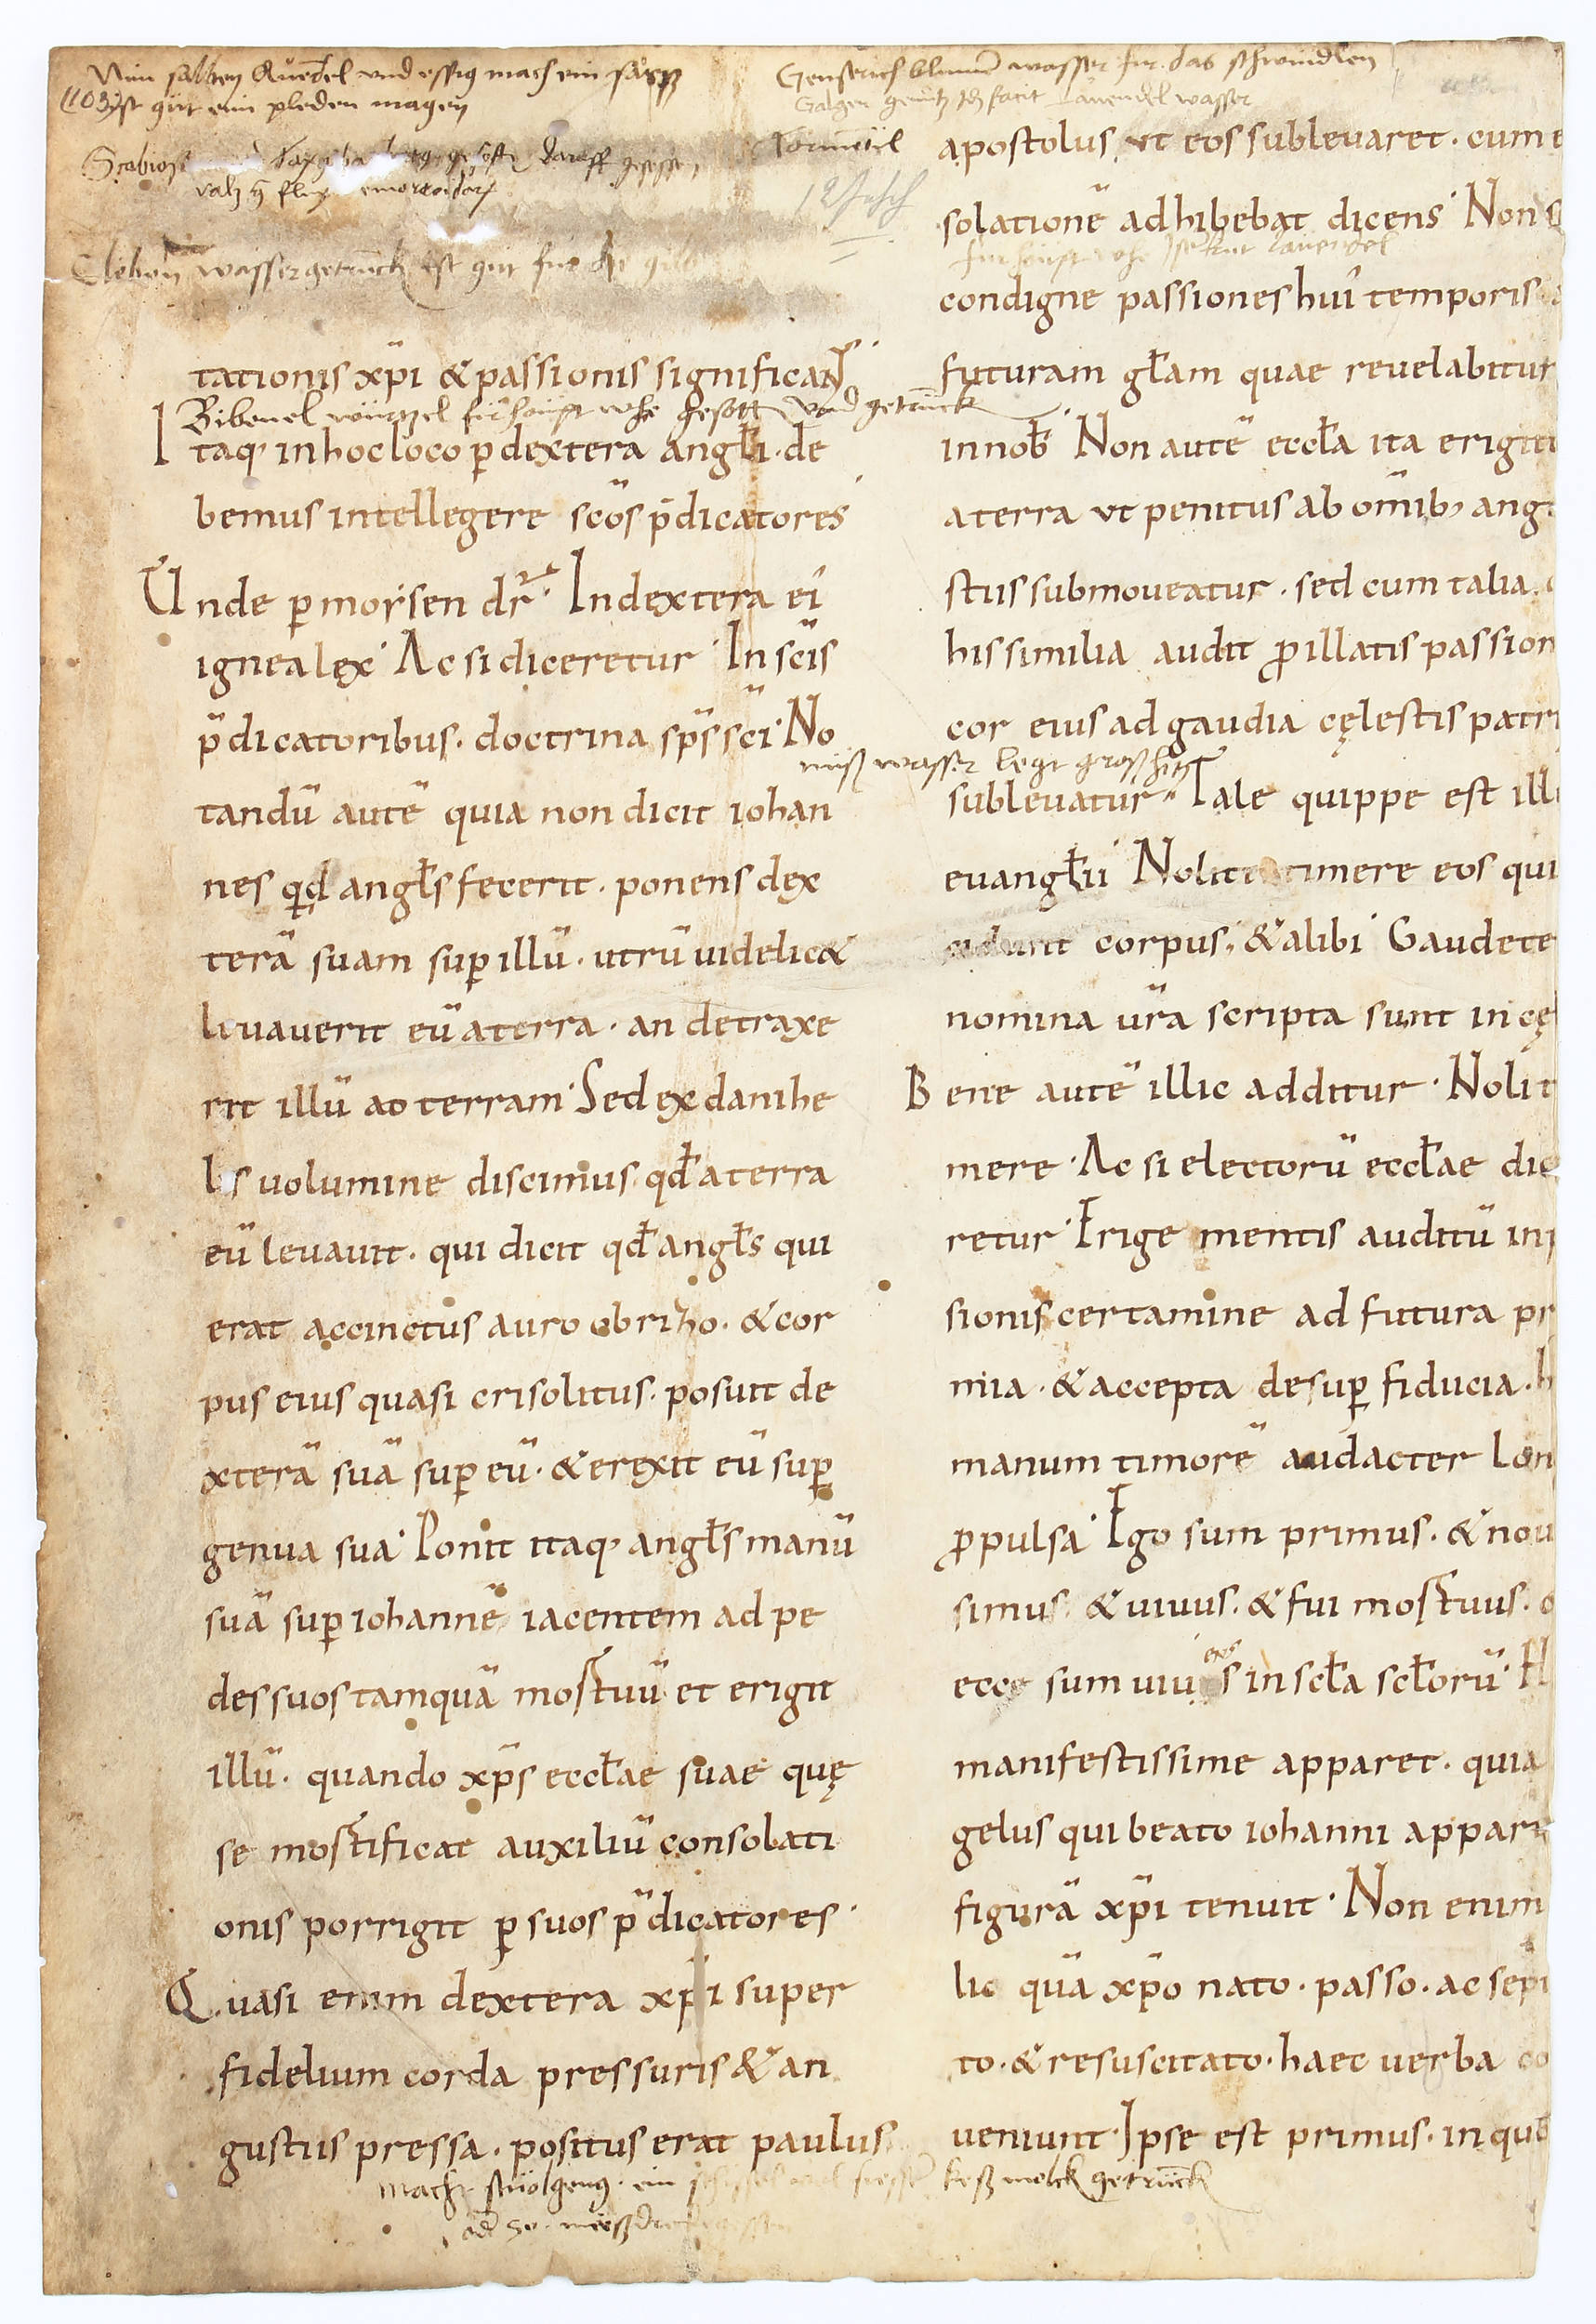 Nim salbey Quendel und essig mach ein salß
ist gut ein pleden magen
Genserich blumē wasser fur das schwindlen
Lauendel wasser
Scabios
daruff gesessen
Tormētil
wasser getrunck ist gut fur die
tationis xp̄i & passionis significat͛
Bibenel würtzel für haupt whe gesott vnd getrunck
I taq; in hoc loco p̱ dextera angłi · de
bemus intellegere sc̄os p̄dicatores
Unde p̱ moysen dr̄ · In dextera ei᾿
ignea lex · Ac si diceretur · In sc̄is
p̄dicatoribus · doctrina sp̄s sc̄i · No
tandū autē quia non dicit iohan
nes qd angłs fecerit · ponens dex
terā suam sup̱ illū · utrū uidelic&
leuauerit eū a terra · an detraxe
rit illū ad terram · Sed ex danihe
lis uolumine discimus · qđ a terra
eū leuauit · qui dicit qđ angłs qui
erat accinctus auro obrizo · & cor
pus eius quasi crisolitus · posuit de
xterā suā sup̱ eū · & erexit eū sup̱
genua sua · Ponit itaq; angłs manū
suā sup̱ iohannē iacentem ad pe
des suos tamquā mortuū et erigit
illū · quando xp̄s eccłae suae quę
se mortificat auxiliū consolati
onis porrigit p̱ suos p̄dicatores ·
Quasi enim dextera xp̄i super
fidelium corda pressuris & an
gustiis pressa · positus erat paulus
apostolus ut eos subleuaret · cum e
solationē adhibebat dicens · Non s
condigne passiones hui᾿ temporis
futuram głam quae reuelabitur
in nob̄ · Non autē eccła ita erigit
a terra ut penitus ab om̄ib; ang
stiis submoueatur · sed cum talia
his similia audit ꝓ illatis passion
cor eius ad gaudia cęlestis patri
nuß wasser legt groß hitz
subleuatur · Tale quippe est ill
euangłii · Nolite timere eos qui
cidunt corpus · & alibi · Gaudete
nomina ūra scripta sunt in cę
Bene autē illic additur · Noli t
mere · Ac si electorū eccłae dic
retur · Erige mentis auditū in
sionis certamine ad futura pr
mia · & accepta desup̱ fiducia · h
manum timorē audacter lon
ꝓpulsa · Ego sum primus · & noui
simus · & uiuus · & fui mortuus ·
ecce sum uiuens in scła scłorū · H
manifestissime apparet · quia
gelus qui beato iohanni appari
figurā xp̄i tenuit · Non enim
lio quā xp̄o nato · passo · ac sepu
to · & resuscitato · haec uerba co
ueniunt · Ipse est primus · in quo
macht stüolgeng · ein keß molck getrunck